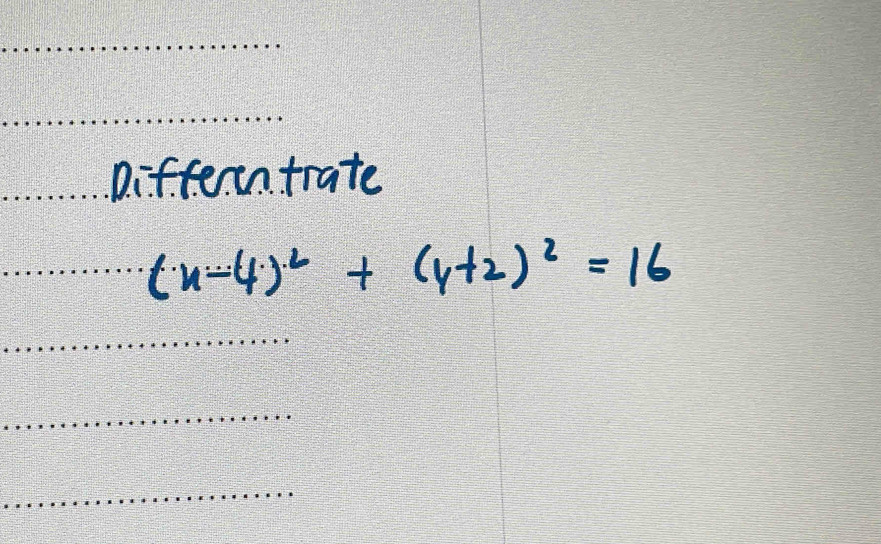 Differentiate
(x-4)² + (y+2)² = 16